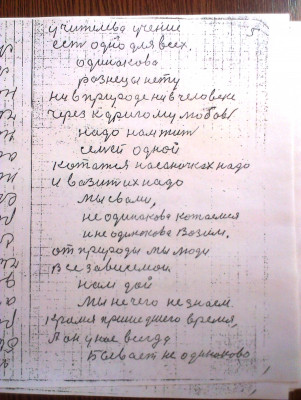 учителева учение
5
есть одно для всех.
одинакова
разнецы нету
ни в природе ни в человеке
через к другому любовь
надо нам жит
семьей одной
кататся на саночках надо
и вазит их надо
мы с вами,
не одинакова катаемся
и не одинакова возим.
от природы мы люди
все зависемы.
нам дай
мы нечего не знаем.
кроме пришедшего время,
А он у нас всегда
бывает не одинаково